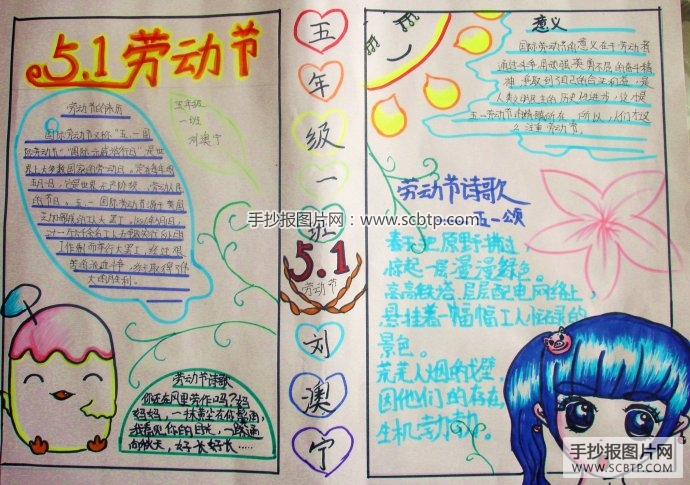 5.1劳动节
劳动节的来历
五年级
一班
刘澳宁
国际劳动节又称"五一国
际劳动节""国际示威游行日"是世
界上大多数国家的劳动节。定在每年的
五月一日。它是世界无产阶级、劳动人民
的节日。五、一国际劳动节源于美国
芝加哥城的工人大罢工
大的胜利。
五
年
级
一
班
5.1
劳动节
刘
澳
宁
劳动节诗歌
你还在风里劳作吗?妈
妈妈妈,一抹黄尘在你
我看见你的目光,一路通
向秋天,好长好长……
意义
国际劳动节的意义在于劳动者
通过斗争,用顽强、英勇不屈的奋斗精
神,争取到了自己的合法权益,是
人类文明民主的历史性进步,这才是
五一劳动节的精髓所在。所以,人们才这
么注重劳动节。
劳动节诗歌
五一颂
春天从原野千拂过,
惊起一层漫漫绿色
高高铁塔,层层配电网络上,
悬挂着一幅幅工人忙碌的
景色。
荒芜人烟的戈壁,
因他们的存在,
生机勃勃。
手抄报图片网:www.scbtp.com
手抄报图片网
WWW.SCBTP.COM